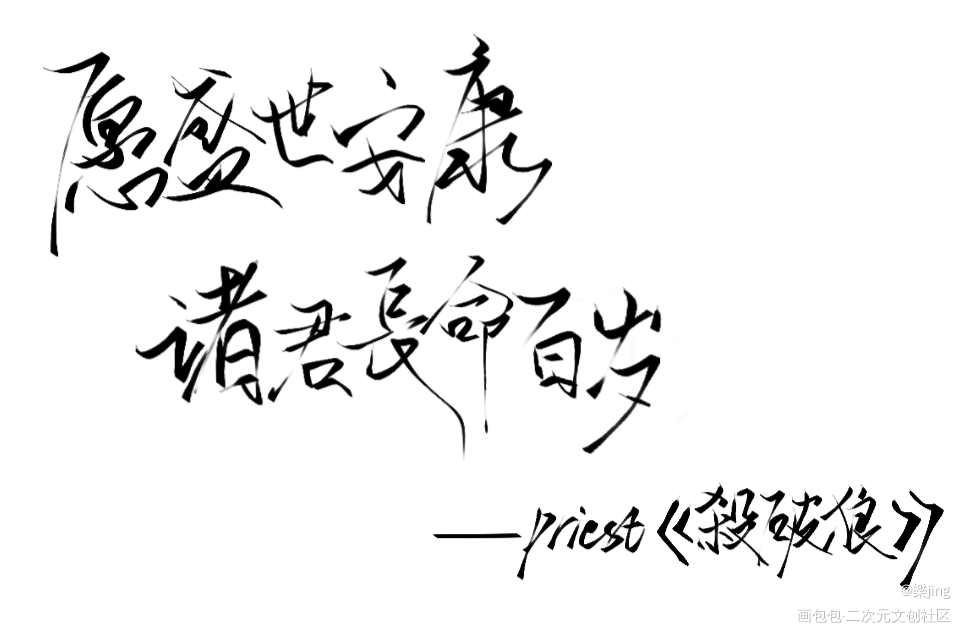 愿盛世安康
诸君長命百岁
——priest《殺破狼》
@樂jing
画包包·二次元文创社区